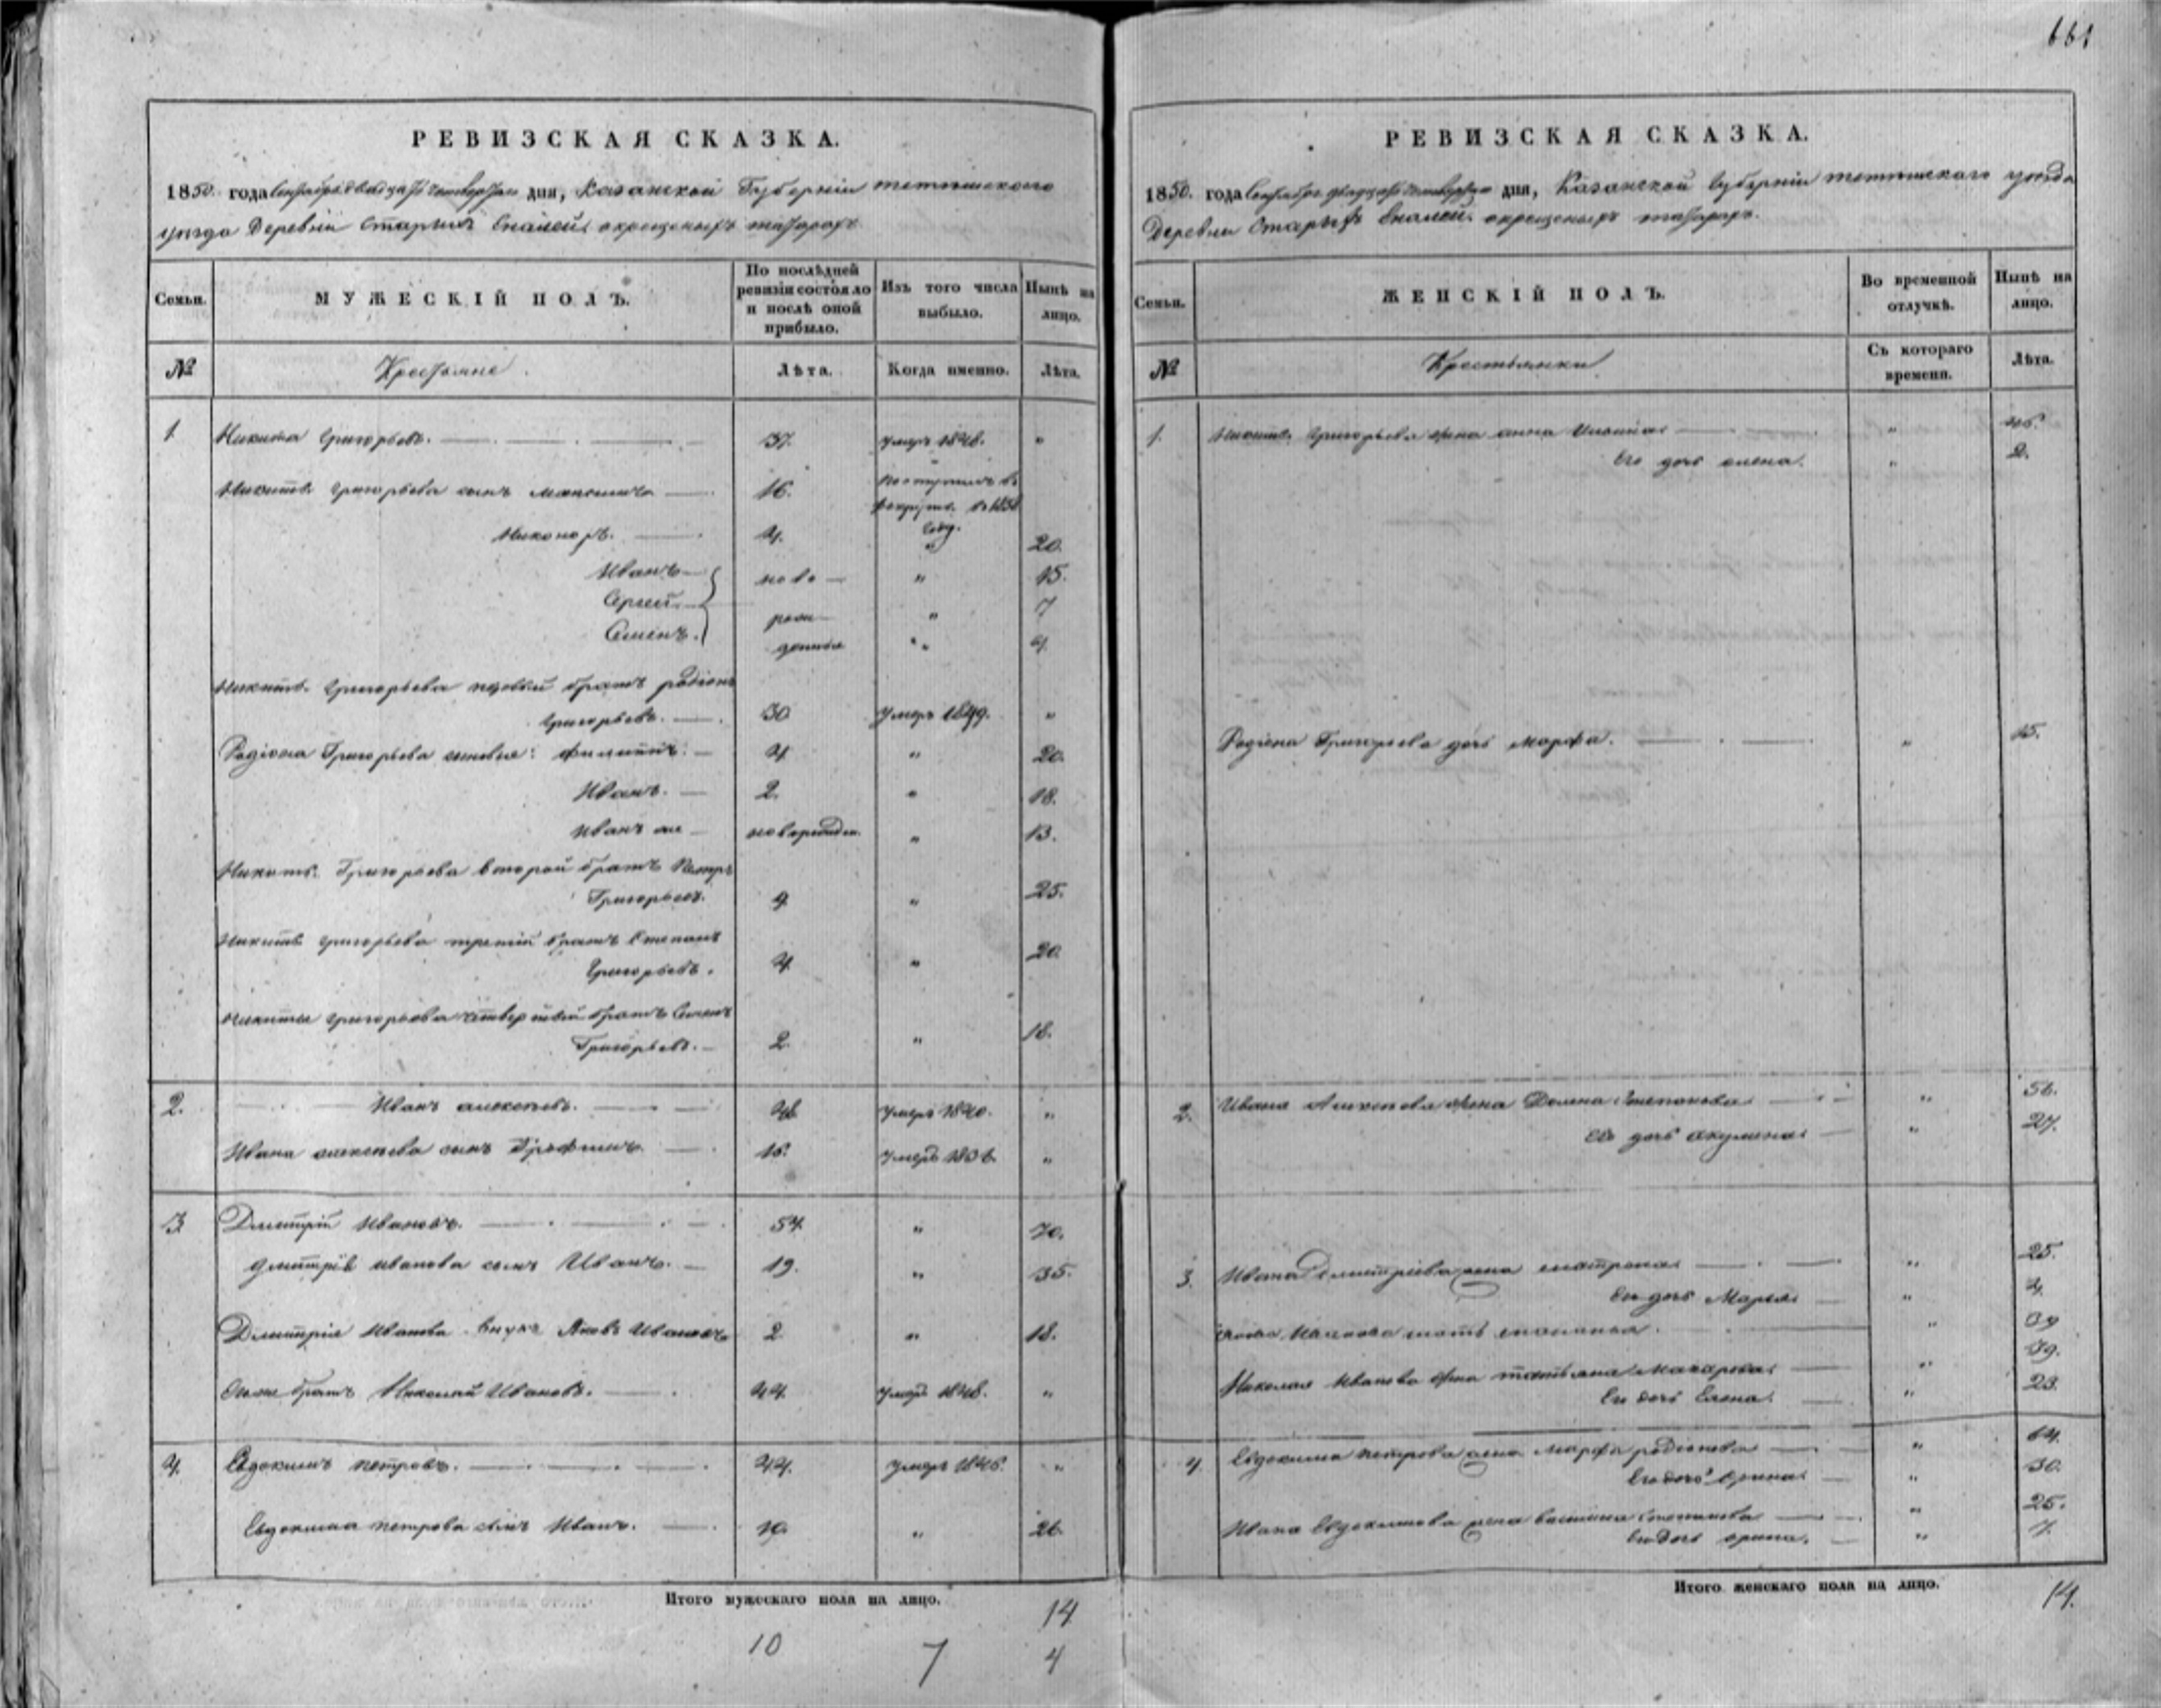 661
РЕВИЗСКАЯ СКАЗКА.
1850. года Сентября двадцать четвертого дня, Казанской Губернии тетюшского
уезда Деревни Старых Еналей окрещеныхъ татаръ
Семьи.
МУЖЕСКІЙ ПОЛЪ.
По послѣдней ревизіи состояло и послѣ оной прибыло.
Изъ того числа выбыло.
Нынѣ на лицо.
№
Крестьяне.
Лѣта.
Когда именно.
Лѣта.
1 Никита Григорьевъ. 37. умеръ 1848. "
Никиты Григорьева сынъ Максимъ 16. поступилъ въ
рекруты въ
году.
Никоноръ. 4. " 20.
Иванъ ново " 15.
Сергей рож " 7
Семенъ. денные " 4.
Никиты Григорьева первый братъ родіонъ
Григорьевъ. 30 умеръ 1849. "
Родіона Григорьева сыновья: Филиппъ. 4 " 20.
Иванъ. 2. " 18.
Иванъ же новорожден. " 13.
Никиты Григорьева второй братъ Петръ
Григорьевъ. 9 " 25.
Никиты Григорьева третій братъ Степанъ
Григорьевъ. 4 " 20
Никиты Григорьева четвертый братъ Семенъ
Григорьевъ. 2. " 18.
2. Иванъ алексеевъ. умеръ 1840. "
Ивана алексеева сынъ Трофимъ 16. умеръ 1836. "
3 Дмитрій Ивановъ. 54. " 70.
Дмитрія иванова сынъ Иванъ. 19. " 35.
Дмитрія Иванова внукъ Яковъ Ивановъ 2 " 18.
братъ Николай Ивановъ. 44. умеръ 1848. "
4. Евдокимъ петровъ. 44. умеръ 1846. "
Евдокима петрова сынъ Иванъ. 10. " 26.
Итого мужескаго пола на лицо. 14
10 7 4
РЕВИЗСКАЯ СКАЗКА.
1850. года Сентября двадцать четвертого дня, Казанской Губерніи тетюшскаго уезда
Деревни Старыхъ Еналей окрещеныхъ татаръ.
Семьи.
ЖЕНСКІЙ ПОЛЪ.
Во временной отлучкѣ.
Нынѣ на лицо.
№
Крестьянки
Съ котораго времени.
Лѣта.
1. Никиты Григорьева жена анна " 46.
Его дочь елена. " 2.
Родіона Григорьева дочь марфа. " 15.
2. Ивана Алексеева жена Домна Степанова " 56.
Его дочь акулина " 27.
3. Ивана Дмитріева жена матрена " 25.
Его дочь Марья " 4.
Якова Иванова мать " 39
Николая Иванова жена татьяна Макарова " 59.
Его дочь Елена. " 23.
4 Евдокима петрова жена Марфа родіонова " 64.
Его дочь арина " 30.
Ивана Евдокимова жена василиса степанова " 25.
Его дочь арина. " 7.
Итого женскаго пола на лицо. 14.